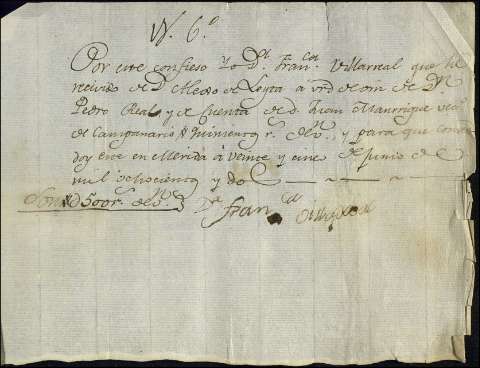 N. 6.º
Por este confieso Yo Dⁿ. Fran.co Villarreal que hè
recivido de Dⁿ Alexo de Leyta a vrd de orn de Dⁿ
Pedro Real y de Cuenta de d. Juan Manrrique vecº.
de Campanario quinientos r.s de Vⁿ, y para que conste
doy este en Merida à veinte y cinco de Junio de
mil ochocientos y dos
Son 500 r.s de Vⁿ. Dⁿ Fran.co Villarreal